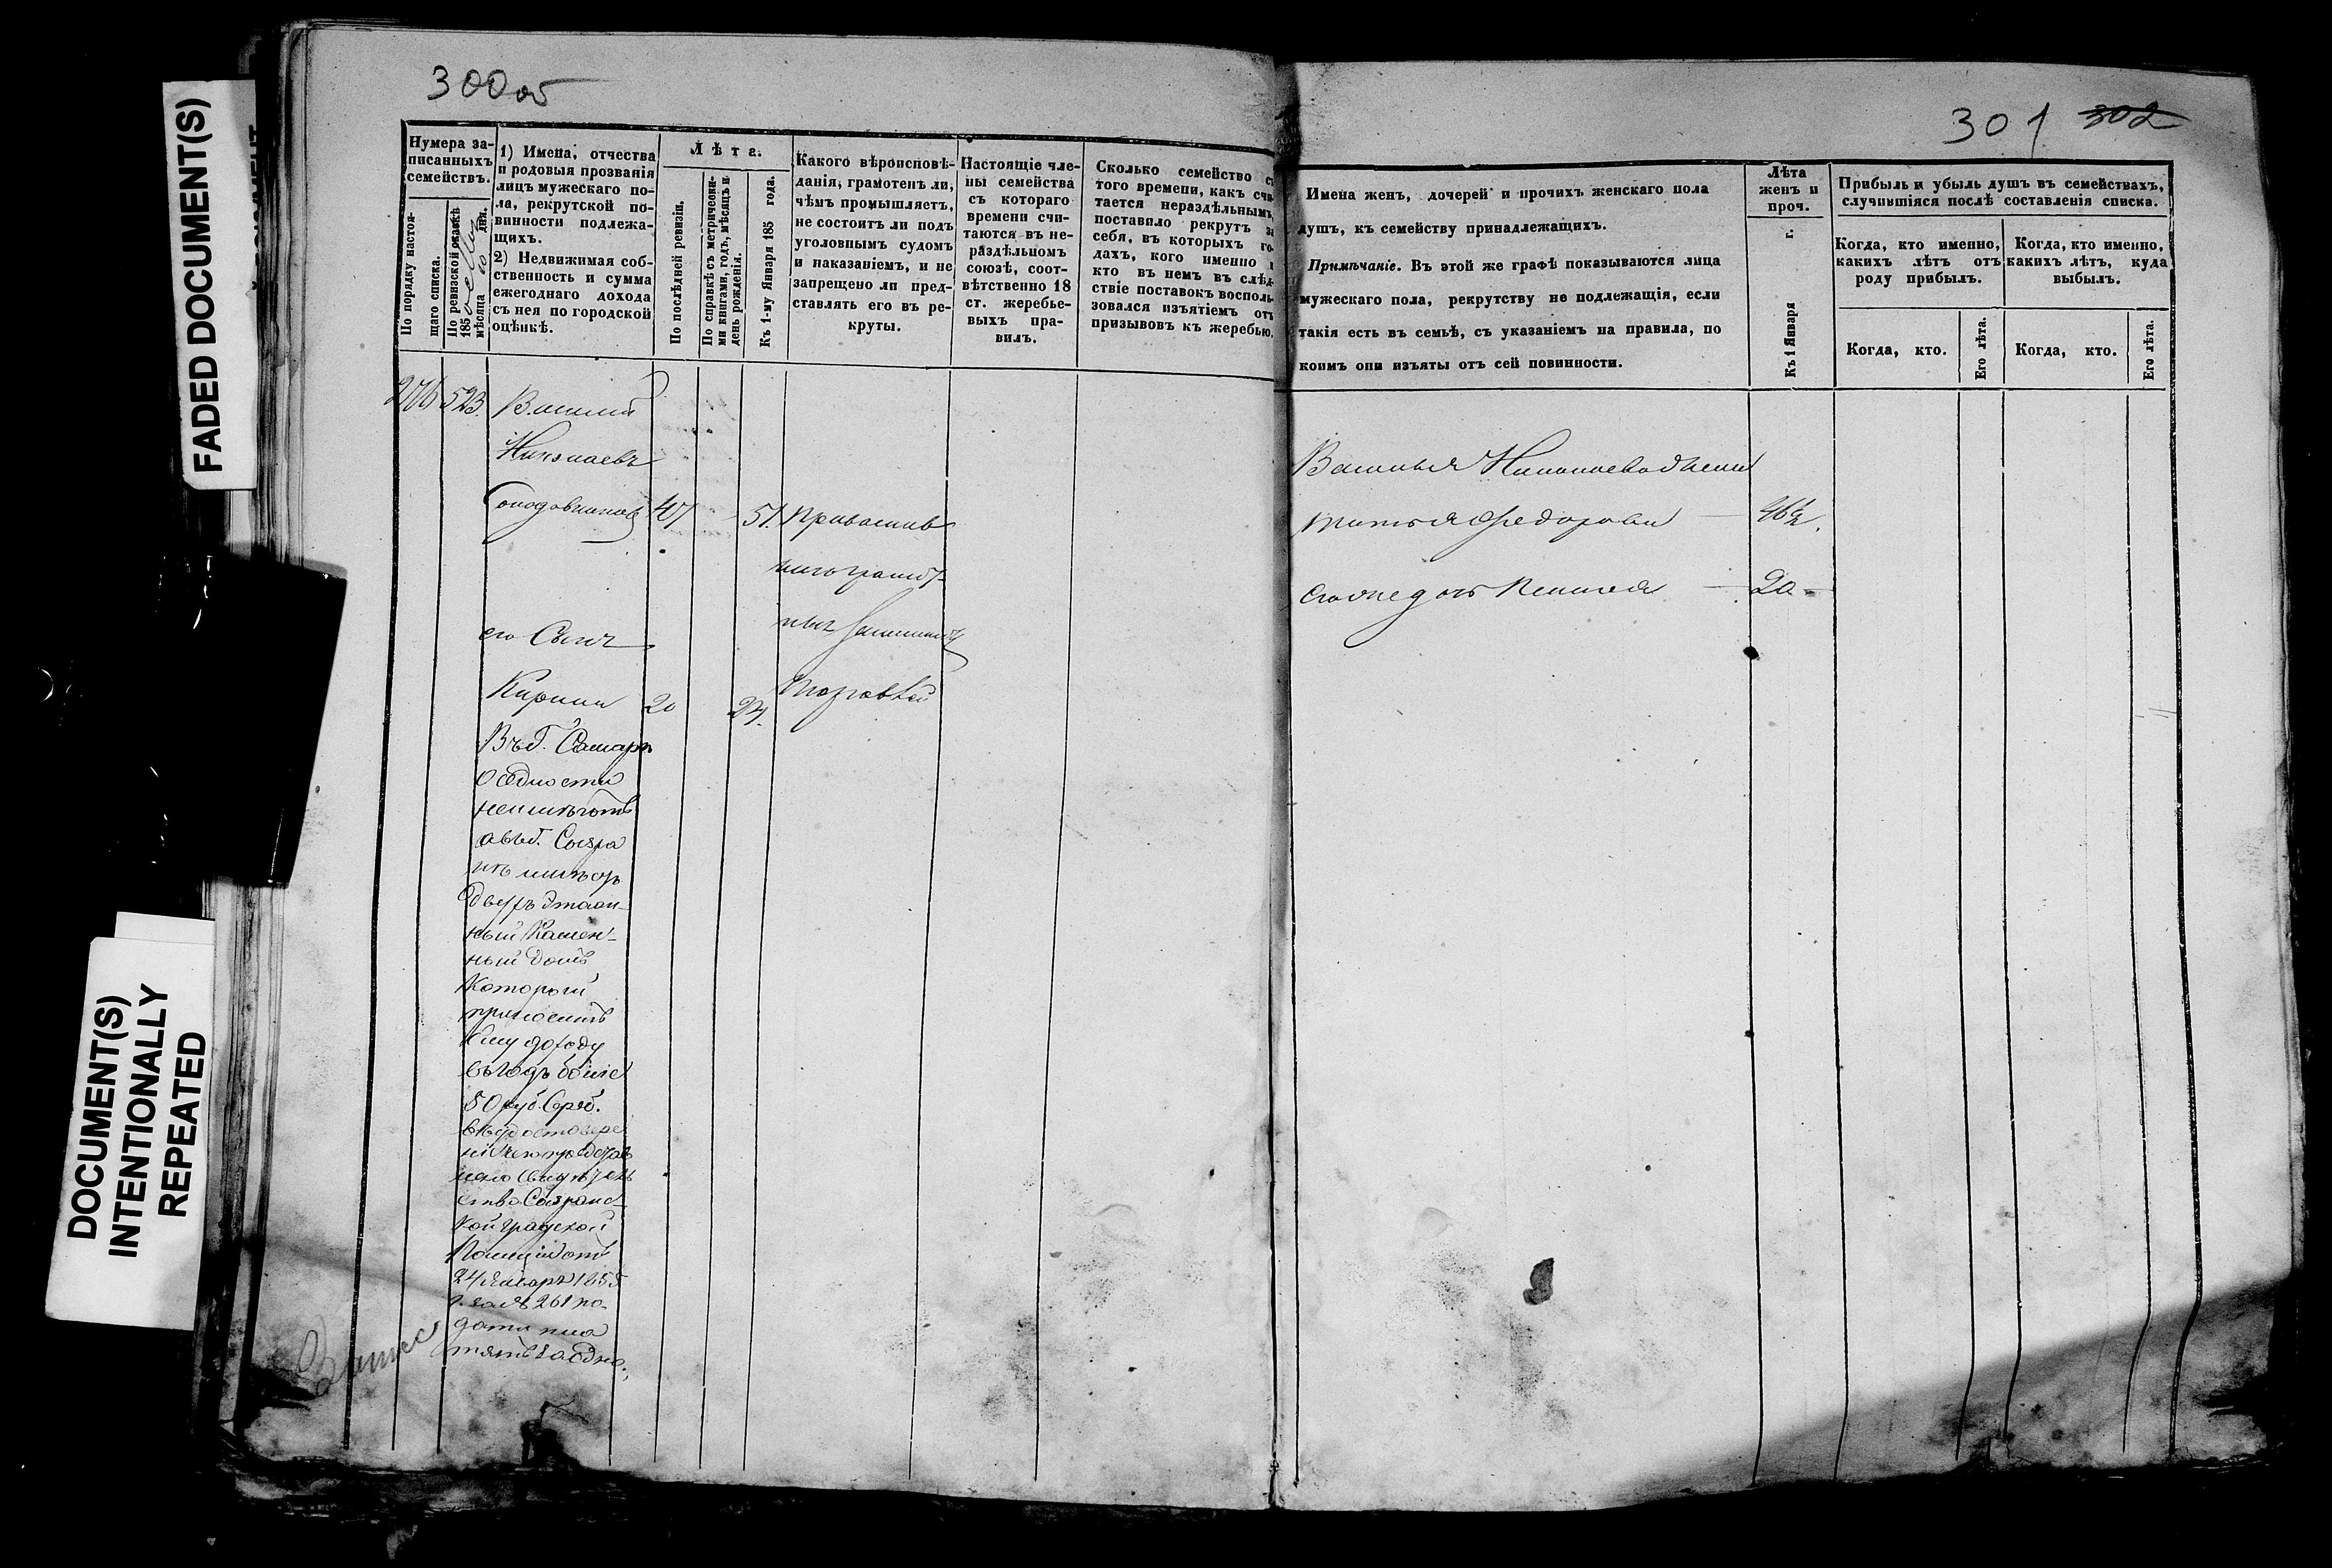 300 об
301 302
FADED DOCUMENT(S)
DOCUMENT(S)
INTENTIONALLY
REPEATED
Нумера за-
писанныхъ
семействъ.
По порядку настоя-
щаго списка.
По ревизской сказкѣ
185
мѣсяца дня.
1) Имена, отчества
и родовыя прозванія
лицъ мужескаго по-
ла, рекрутской по-
винности подлежа-
щихъ.
2) Недвижимая соб-
ственность и сумма
ежегоднаго дохода
съ нея по городской
оцѣнкѣ.
Лѣта.
По послѣдней ревизіи.
По справкѣ съ метрически-
ми книгами, годъ, мѣсяцъ и
день рожденія.
Къ 1-му Января 185 года.
Какого вѣроисповѣ-
данія, грамотенъ ли,
чѣмъ промышляетъ,
не состоитъ ли подъ
уголовнымъ судомъ
и наказаніемъ, и не
запрещено ли пред-
ставлять его въ ре-
круты.
Настоящіе чле-
ны семейства
съ котораго
времени счи-
таются въ не-
раздѣльномъ
союзѣ, соот-
вѣтственно 18
ст. жеребье-
выхъ пра-
вилъ.
Сколько семейство с
того времени, какъ счи
тается нераздѣльнымъ,
поставило рекрутъ за
себя, въ которыхъ го-
дахъ, кого именно и
кто въ немъ въ слѣд-
ствіе поставокъ восполь-
зовался изъятіемъ отъ
призывовъ къ жеребью.
Имена женъ, дочерей и прочихъ женскаго пола
душъ, къ семейству принадлежащихъ.
Примѣчаніе. Въ этой же графѣ показываются лица
мужескаго пола, рекрутству не подлежащія, если
такія есть въ семьѣ, съ указаніемъ на правила, по
коимъ они изъяты отъ сей повинности.
Лѣта
женъ и
проч.
Къ 1 Января г.
Прибыль и убыль душъ въ семействахъ,
случившіяся послѣ составленія списка.
Когда, кто именно,
какихъ лѣтъ отъ
роду прибылъ.
Когда, кто именно,
какихъ лѣтъ, куда
выбылъ.
Когда, кто.
Его лѣта.
Когда, кто.
Его лѣта.
523. Василій
Николаевъ
47 51. Православ
наго грамот-
ный
торговлей
его Сынъ
Кирилъ 20 24.
Въ Г. Самарѣ
осѣдлости
неимѣютъ
а въ Г. Сызра
нѣ имѣютъ
двухъ этаж-
ный Камен-
ный домъ
Который
приноситъ
Ему доходу
въ годъ болѣе
50 руб. Сереб.
въ удостовере
ніи чего представ
лено свидѣтель
ство Сызранс-
кой градской
Полиціи отъ
24 Января 1855
г. за № 261 по
дати пла
тятъ за одно.
Василья Николаева жена
Федорова 46 ½.
20